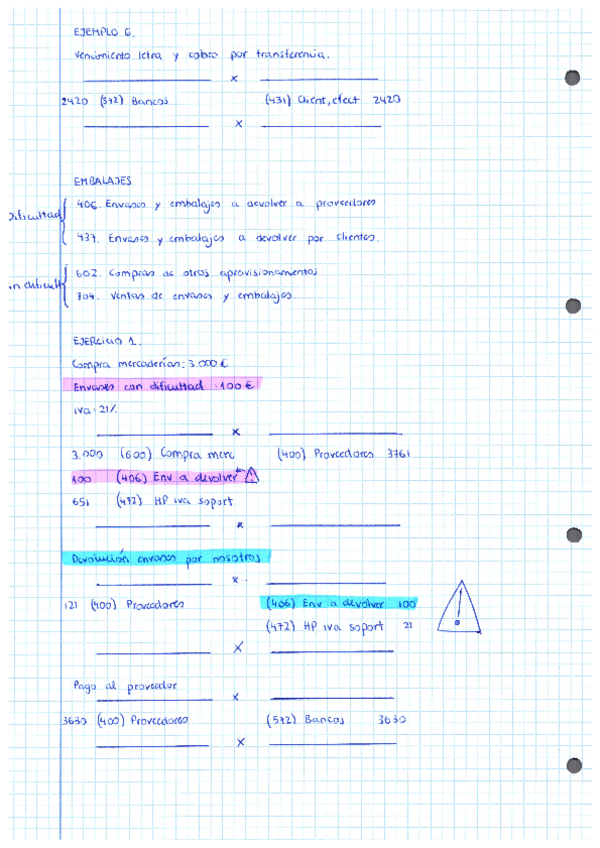 EJEMPLO 6.
Vencimiento letra y cobro por transferencia.
x
2420 (572) Bancos (431) Client, efect 2420
x
EMBALAJES
406. Envases y embalajes a devolver a proveedores
Dificultad
437. Envases y embalajes a devolver por clientes.
602. Compras de otros aprovisionamentos
704. Ventas de envases y embalajes.
EJERCICIO 1.
Compra mercaderías: 3.000 €
Envases con dificultad : 100 €
iva: 21%
x
3.000 (600) Compra merc (400) Proveedores 3761
100 (406) Env a devolver !
651 (472) HP iva soport
x
Devolución envases por nosotros
x
121 (400) Proveedores (406) Env a devolver 100
(472) HP iva soport 21
x
Pago al proveedor
x
3630 (400) Proveedores (572) Bancos 3630
x